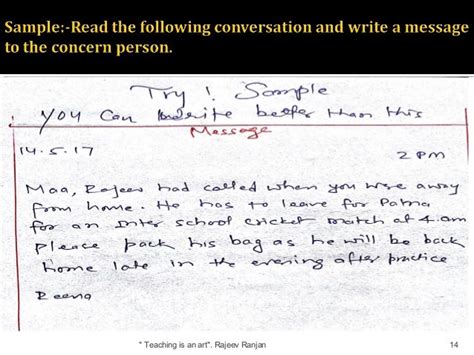 Sample:-Read the following conversation and write a message
to the concern person.
Try! Sample
you can write better than this
Message
14.5.17
2 pm
Maa, Rajeev had called when you were away
from home. He has to leave for Patna
for an Inter school cricket match at 4.am
please pack his bag as he will be back
home late in the evening after practice
Reena
" Teaching is an art". Rajeev Ranjan
14